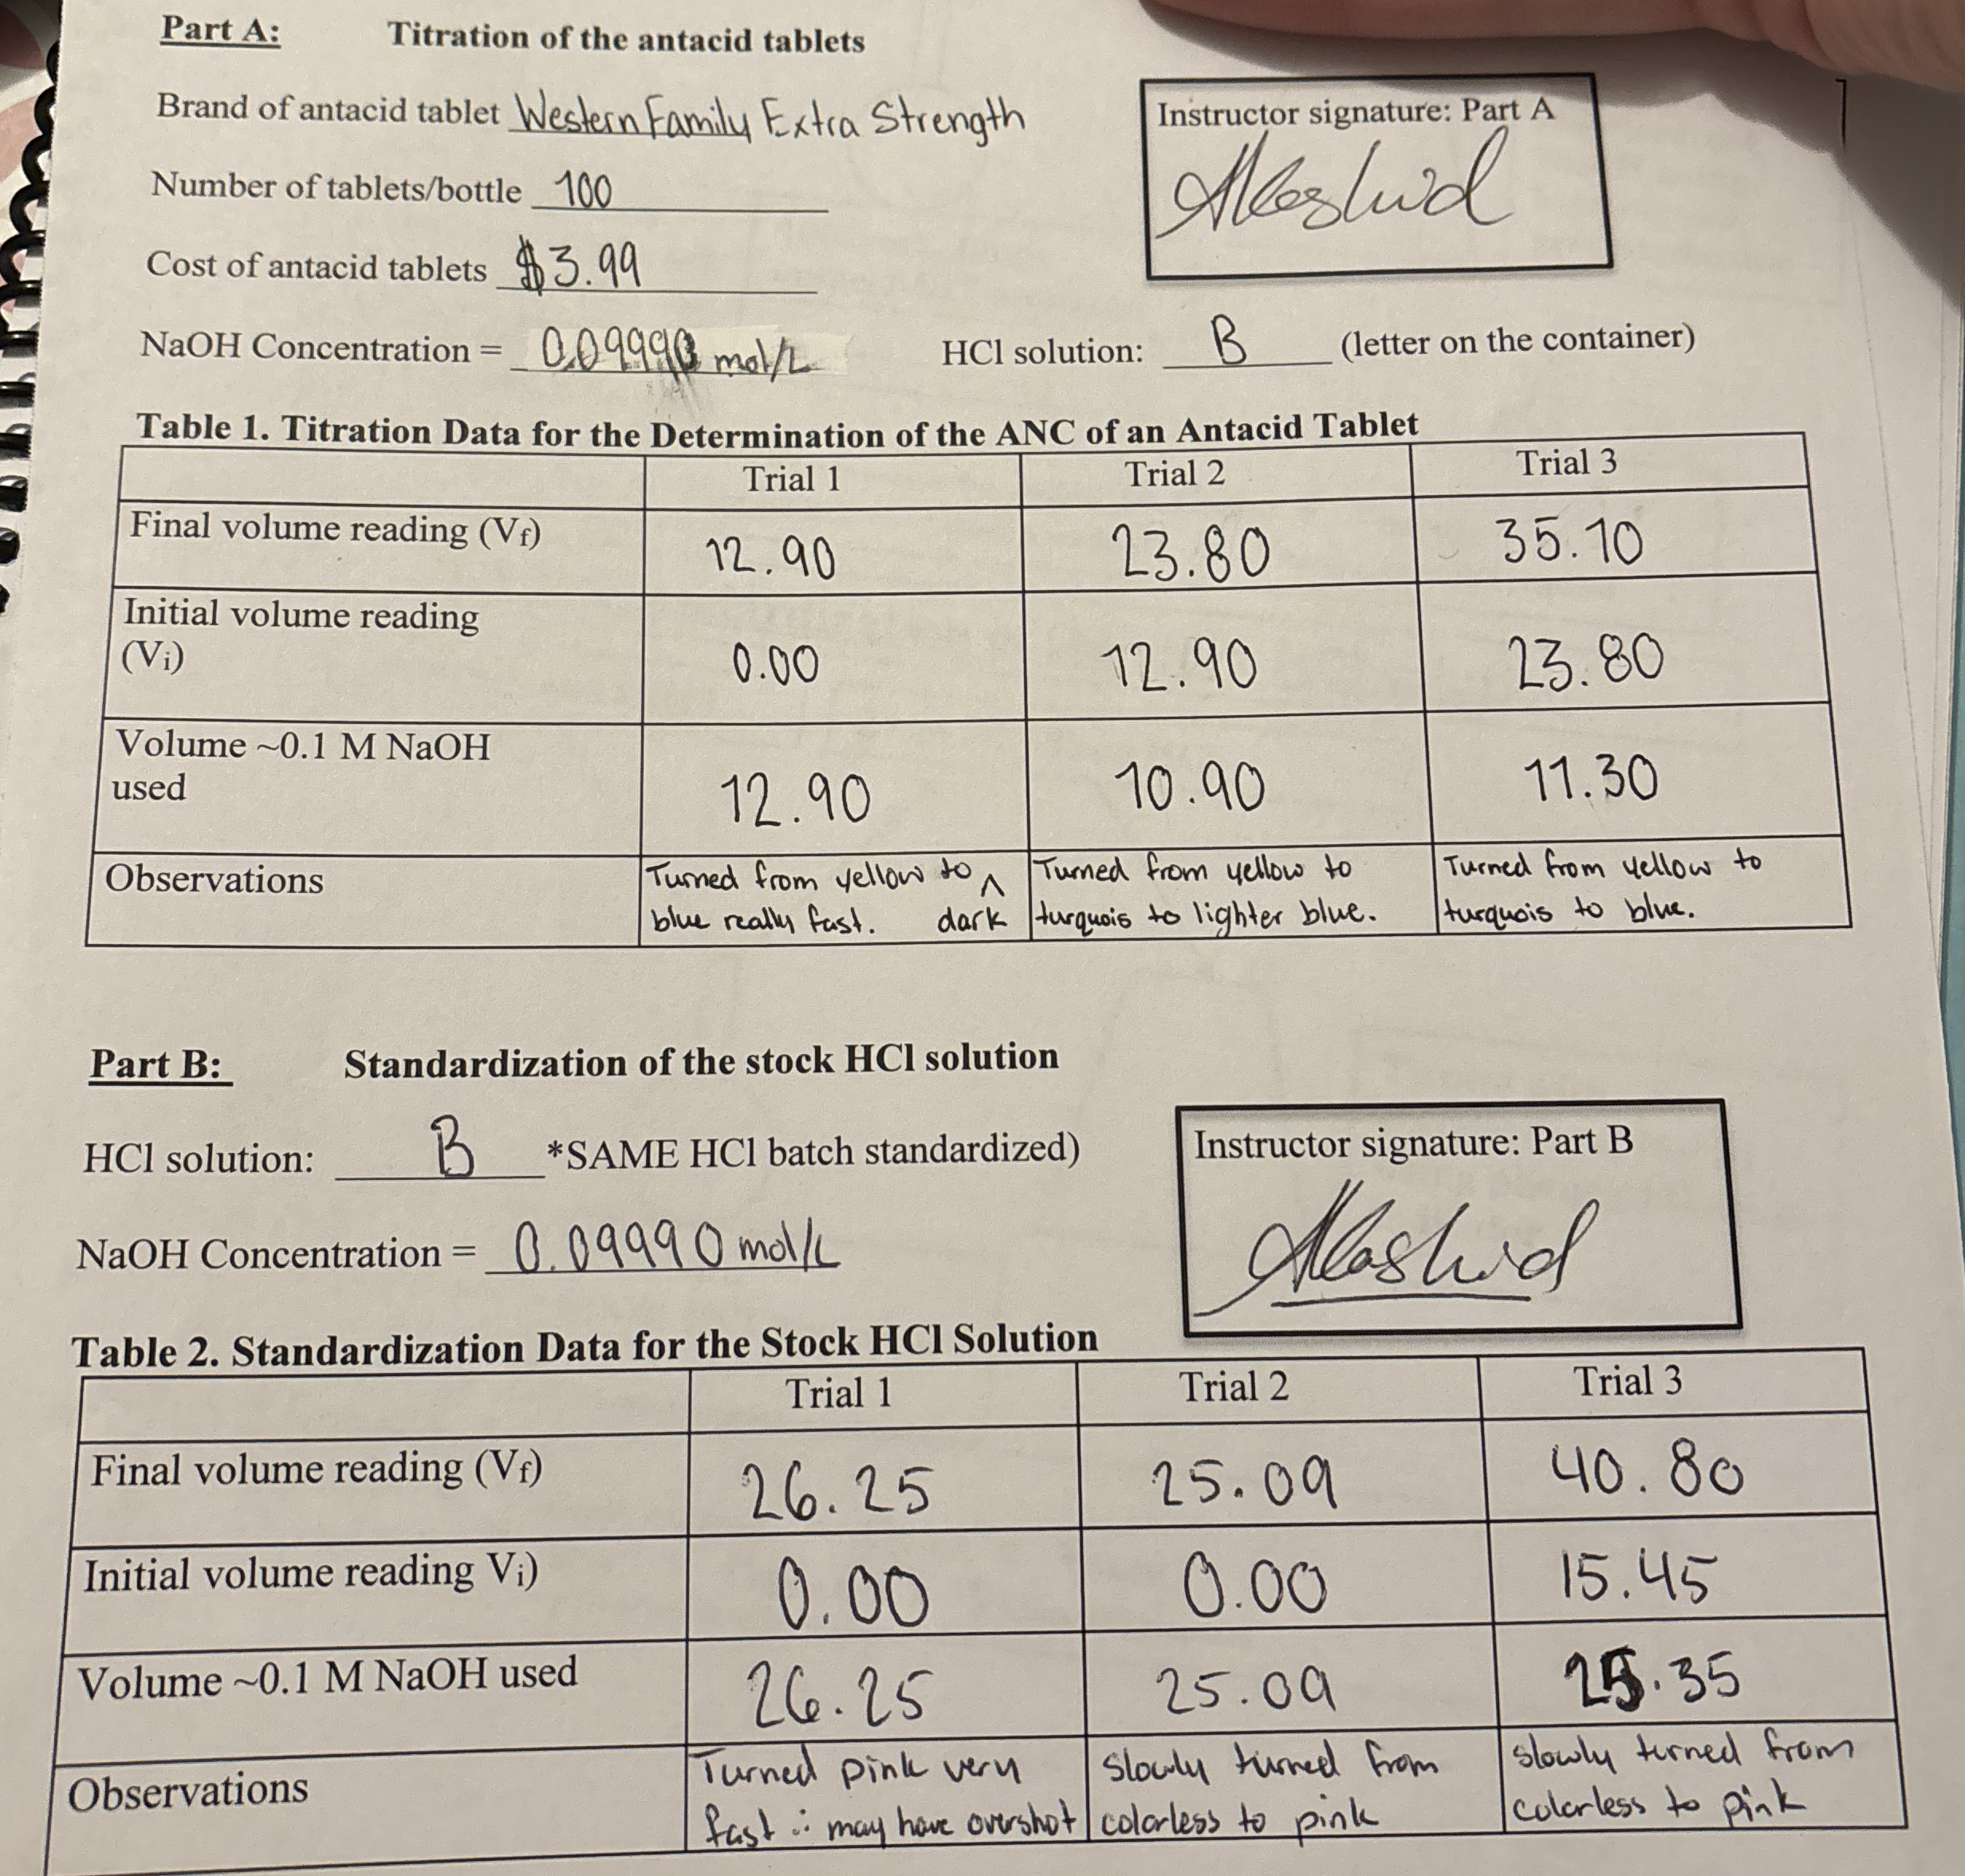 Part A: Titration of the antacid tablets
Brand of antacid tablet Western Family Extra Strength
Instructor signature: Part A
Number of tablets/bottle 100
Cost of antacid tablets $3.99
NaOH Concentration = 0.09990 mol/L HCl solution: B (letter on the container)
Table 1. Titration Data for the Determination of the ANC of an Antacid Tablet
Trial 1 Trial 2 Trial 3
Final volume reading (Vf) 12.90 23.80 35.10
Initial volume reading
(Vi) 0.00 12.90 23.80
Volume ~0.1 M NaOH
used 12.90 10.90 11.30
Observations Turned from yellow to ^ dark
blue really fast. Turned from yellow to
turquois to lighter blue. Turned from yellow to
turquois to blue.
Part B: Standardization of the stock HCl solution
HCl solution: B *SAME HCl batch standardized)
Instructor signature: Part B
NaOH Concentration = 0.09990 mol/L
Table 2. Standardization Data for the Stock HCl Solution
Trial 1 Trial 2 Trial 3
Final volume reading (Vf) 26.25 25.09 40.80
Initial volume reading Vi) 0.00 0.00 15.45
Volume ~0.1 M NaOH used 26.25 25.09 25.35
Observations Turned pink very
fast ∴ may have overshot Slowly turned from
colorless to pink Slowly turned from
colorless to pink